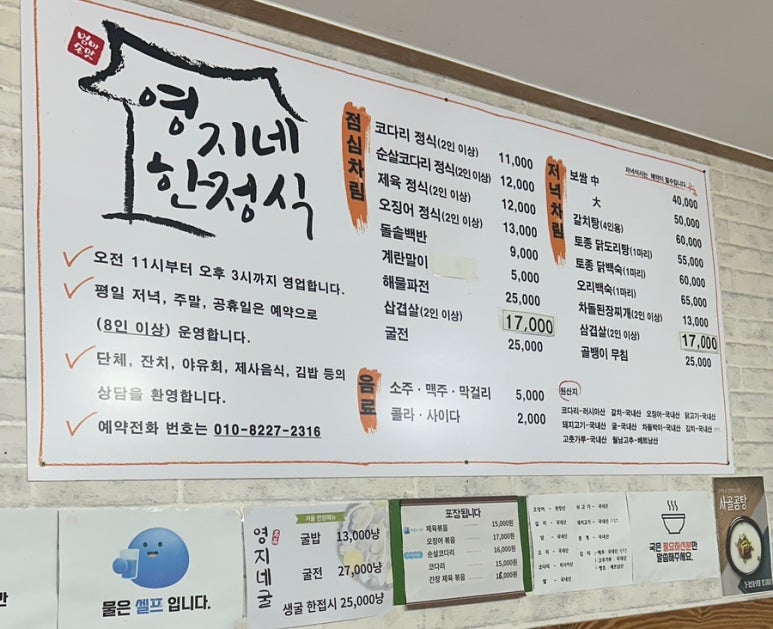 엄마
손맛
영지네
한정식
오전 11시부터 오후 3시까지 영업합니다.
평일 저녁, 주말, 공휴일은 예약으로
(8인 이상) 운영합니다.
단체, 잔치, 야유회, 제사음식, 김밥 등의
상담을 환영합니다.
예약전화 번호는 010-8227-2316
점심차림
코다리 정식(2인 이상) 11,000
순살코다리 정식(2인 이상) 12,000
제육 정식(2인 이상) 12,000
오징어 정식(2인 이상) 13,000
돌솥백반 9,000
계란말이 5,000
해물파전 25,000
삼겹살(2인 이상) 17,000
굴전 25,000
음료
소주·맥주·막걸리 5,000
콜라·사이다 2,000
저녁차림
저녁식사는, 예약이 필수입니다
보쌈 中 40,000
大 50,000
갈치탕(4인용) 60,000
토종 닭도리탕(1마리) 55,000
토종 닭백숙(1마리) 60,000
오리백숙(1마리) 65,000
차돌된장찌개(2인 이상) 13,000
삼겹살(2인 이상) 17,000
골뱅이 무침 25,000
원산지
코다리-러시아산 갈치-국내산 오징어-국내산 닭고기-국내산
돼지고기-국내산 굴-국내산 차돌박이-국내산 김치-국내산
고춧가루-국내산 월남고추-베트남산
물은 셀프 입니다.
겨울 한정메뉴
영지네굴
굴밥 13,000냥
굴전 27,000냥
생굴 한접시 25,000냥
포장됩니다
제육볶음 15,000원
오징어 볶음 17,000원
순살코다리 16,000원
코다리 15,000원
간장 제육 볶음 16,000원
국은 필요하신분만
말씀해주세요.
사골곰탕